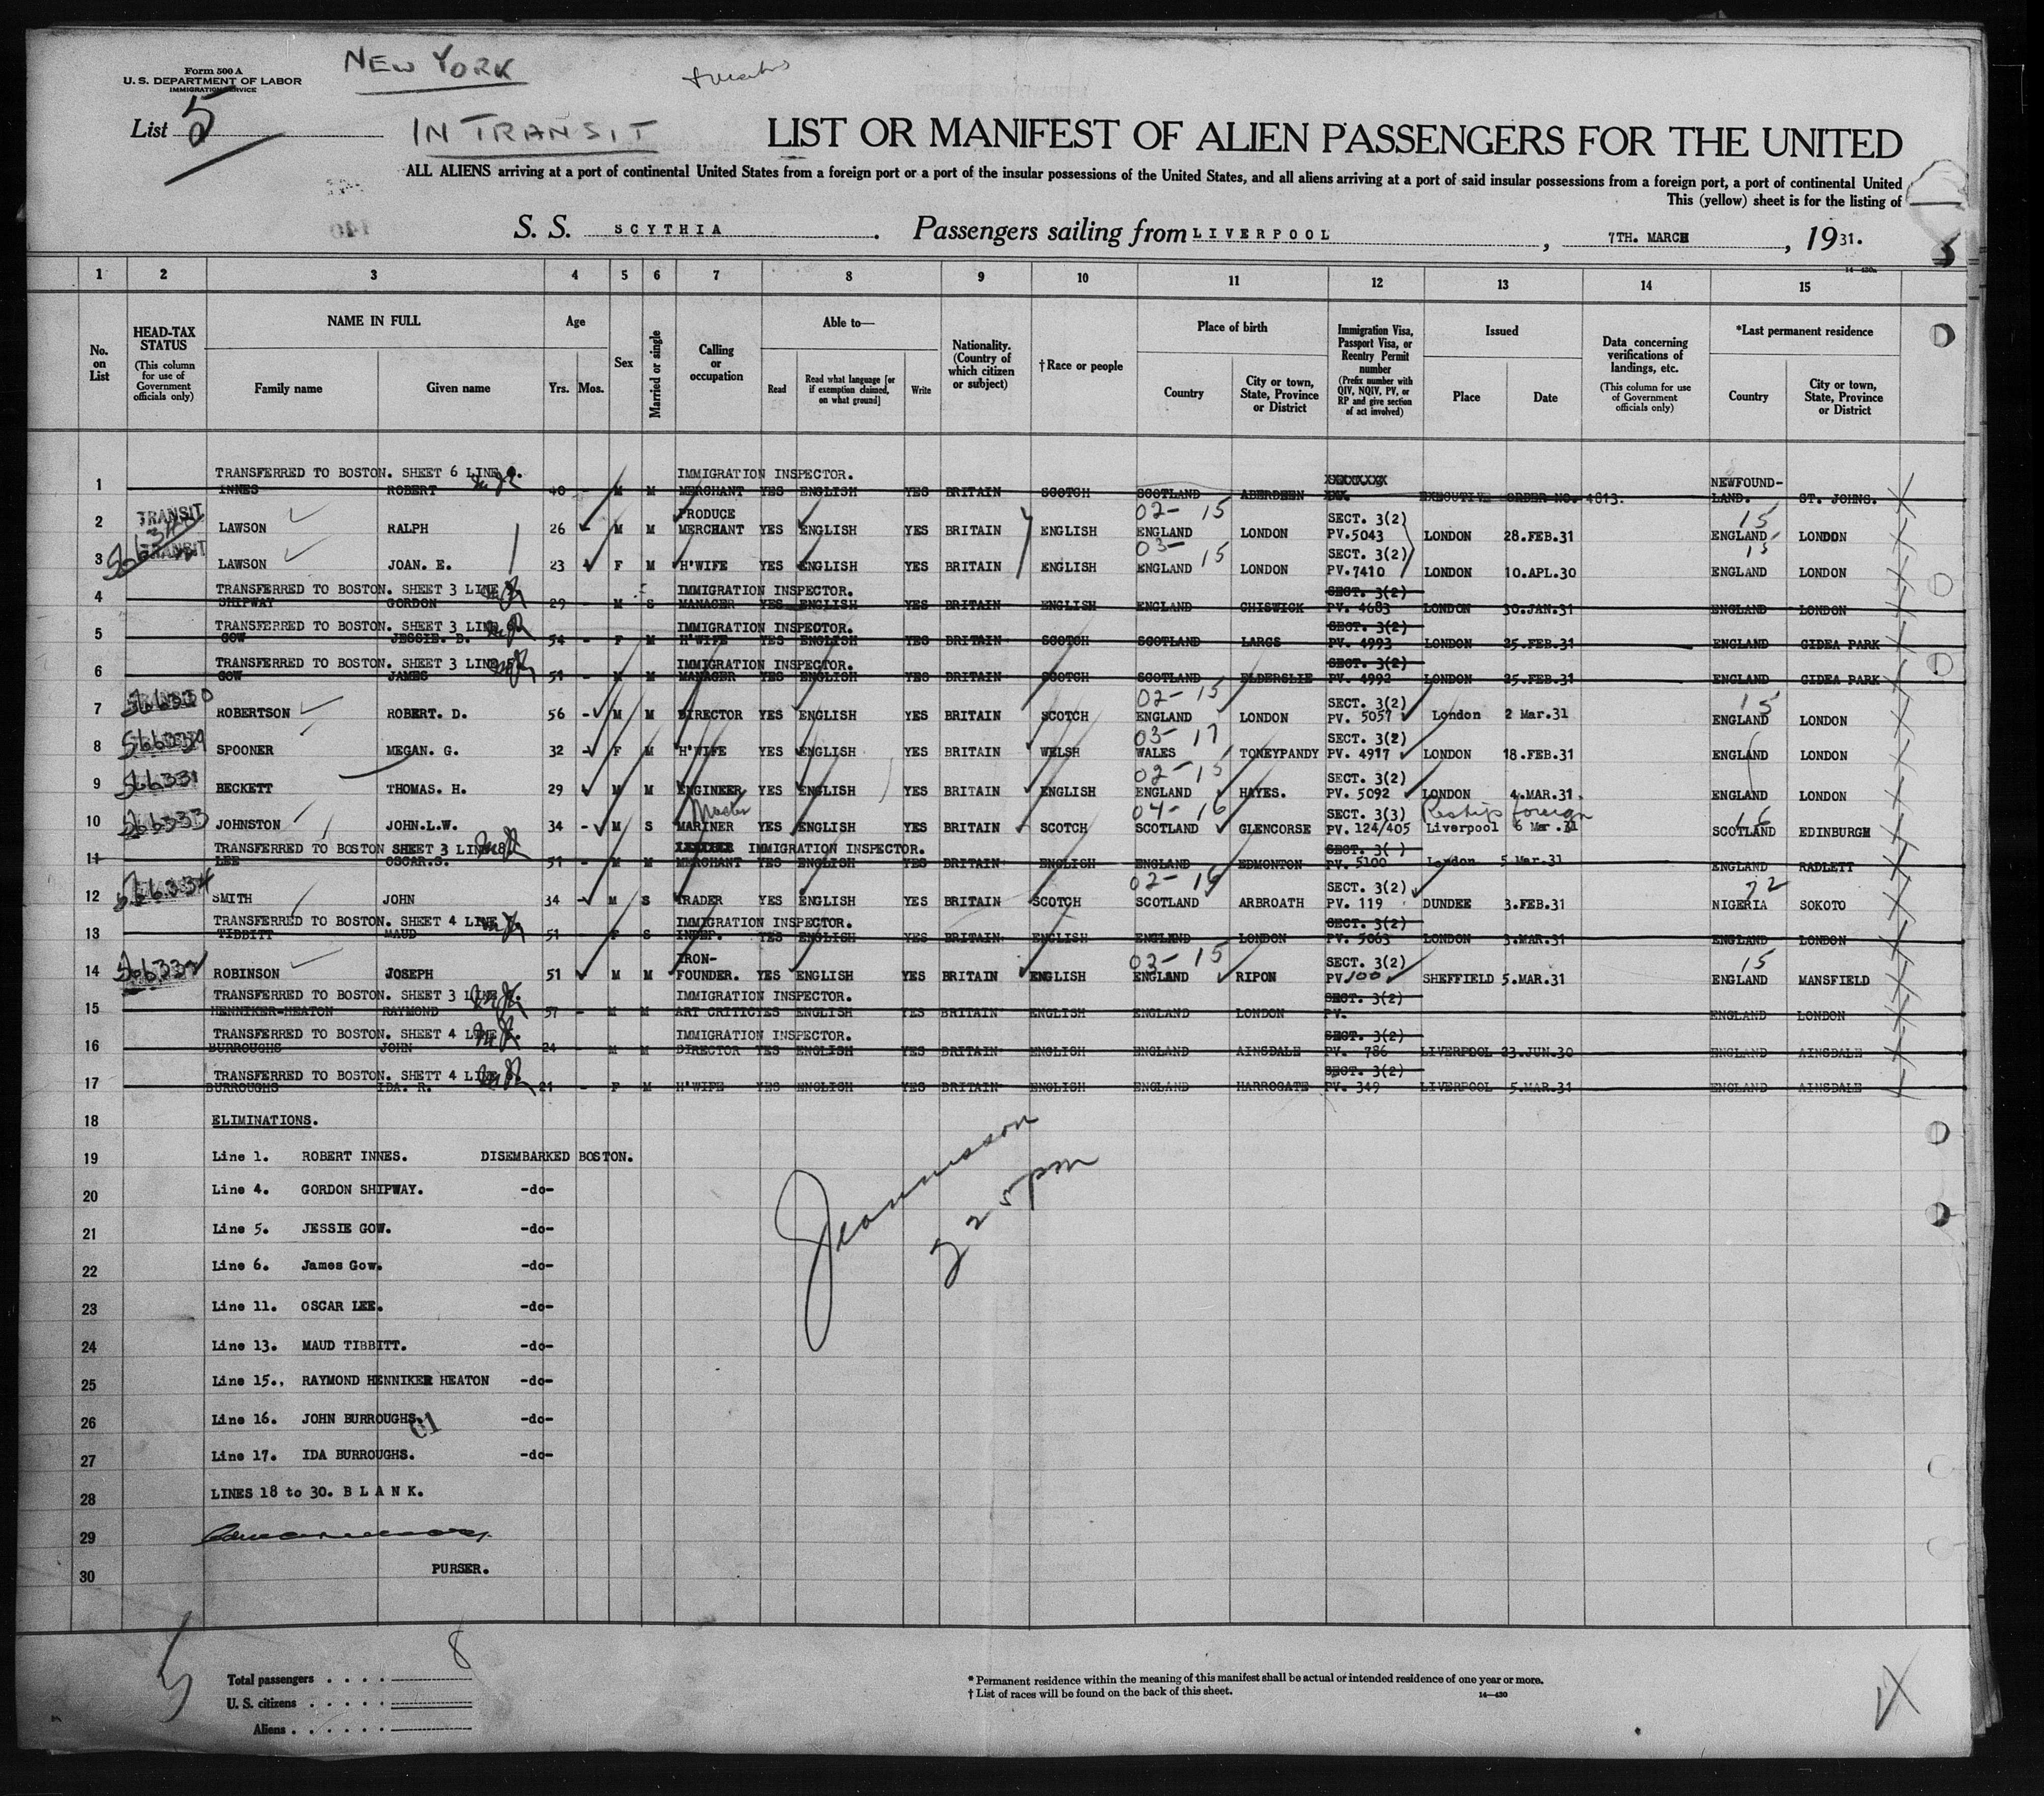 Form 500 A
U. S. DEPARTMENT OF LABOR
IMMIGRATION SERVICE
NEW YORK
List 5
IN TRANSIT
LIST OR MANIFEST OF ALIEN PASSENGERS FOR THE UNITED
ALL ALIENS arriving at a port of continental United States from a foreign port or a port of the insular possessions of the United States, and all aliens arriving at a port of said insular possessions from a foreign port, a port of continental United
This (yellow) sheet is for the listing of
S. S. SCYTHIA. Passengers sailing from LIVERPOOL, 7TH. MARCH, 1931.
14—430a
1 2 3 4 5 6 7 8 9 10 11 12 13 14 15
No. on List
HEAD-TAX STATUS (This column for use of Government officials only)
NAME IN FULL
Family name
Given name
Age
Yrs. Mos.
Sex
Married or single
Calling or occupation
Able to—
Read
Read what language [or if exemption claimed, on what ground]
Write
Nationality. (Country of which citizen or subject)
† Race or people
Place of birth
Country
City or town, State, Province or District
Immigration Visa, Passport Visa, or Reentry Permit number (Prefix number with QIV, NQIV, PV, or RP and give section of act involved)
Issued
Place
Date
Data concerning verifications of landings, etc. (This column for use of Government officials only)
*Last permanent residence
Country
City or town, State, Province or District
TRANSFERRED TO BOSTON. SHEET 6 LINE IMMIGRATION INSPECTOR. XXXXXXXX NEWFOUND-
1 INNES ROBERT 40 - M M MERCHANT YES ENGLISH YES BRITAIN SCOTCH SCOTLAND ABERDEEN XXX. EXECUTIVE ORDER NO. 4813. LAND. ST. JOHNS.
TRANSIT PRODUCE 02- 15 SECT. 3(2) 15
2 LAWSON RALPH 26 M M MERCHANT YES ENGLISH YES BRITAIN ENGLISH ENGLAND LONDON PV.5043 LONDON 28.FEB.31 ENGLAND LONDON
TRANSIT 03- 15 SECT. 3(2) 15
3 LAWSON JOAN. E. 23 F M H'WIFE YES ENGLISH YES BRITAIN ENGLISH ENGLAND LONDON PV.7410 LONDON 10.APL.30 ENGLAND LONDON
TRANSFERRED TO BOSTON. SHEET 3 LINE IMMIGRATION INSPECTOR. SECT. 3(2)
4 SHIPWAY GORDON 29 - M S MANAGER YES ENGLISH YES BRITAIN ENGLISH ENGLAND CHISWICK PV. 4683 LONDON 30.JAN.31 ENGLAND LONDON
TRANSFERRED TO BOSTON. SHEET 3 LINE IMMIGRATION INSPECTOR. SECT. 3(2)
5 GOW JESSIE. D. 54 - F M H'WIFE YES ENGLISH YES BRITAIN SCOTCH SCOTLAND LARGS PV. 4993 LONDON 25.FEB.31 ENGLAND GIDEA PARK
TRANSFERRED TO BOSTON. SHEET 3 LINE IMMIGRATION INSPECTOR. SECT. 3(2)
6 GOW JAMES 51 - M M MANAGER YES ENGLISH YES BRITAIN SCOTCH SCOTLAND ELDERSLIE PV. 4992 LONDON 25.FEB.31 ENGLAND GIDEA PARK
566330 02- 15 SECT. 3(2) 15
7 ROBERTSON ROBERT. D. 56 - M M DIRECTOR YES ENGLISH YES BRITAIN SCOTCH ENGLAND LONDON PV. 5057 London 2 Mar.31 ENGLAND LONDON
566329 03- 17 SECT. 3(2)
8 SPOONER MEGAN. G. 32 - F M H'WIFE YES ENGLISH YES BRITAIN WELSH WALES TONEYPANDY PV. 4917 LONDON 18.FEB.31 ENGLAND LONDON
566331 02- 15 SECT. 3(2)
9 BECKETT THOMAS. H. 29 M M ENGINEER YES ENGLISH YES BRITAIN ENGLISH ENGLAND HAYES. PV. 5092 LONDON 4.MAR.31 ENGLAND LONDON
566333 Master 04- 16 SECT. 3(3) Reship foreign 16
10 JOHNSTON JOHN.L.W. 34 - M S MARINER YES ENGLISH YES BRITAIN SCOTCH SCOTLAND GLENCORSE PV. 124/405 Liverpool 6 Mar.31 SCOTLAND EDINBURGH
TRANSFERRED TO BOSTON SHEET 3 LINE 8 IMMIGRATION INSPECTOR. SECT. 3( )
11 LEE OSCAR.S. 51 - M M MERCHANT YES ENGLISH YES BRITAIN ENGLISH ENGLAND EDMONTON PV. 5100 London 5 Mar.31 ENGLAND RADLETT
566334 02- 16 SECT. 3(2) 72
12 SMITH JOHN 34 - M S TRADER YES ENGLISH YES BRITAIN SCOTCH SCOTLAND ARBROATH PV. 119 DUNDEE 3.FEB.31 NIGERIA SOKOTO
TRANSFERRED TO BOSTON. SHEET 4 LINE IMMIGRATION INSPECTOR. SECT. 3(2)
13 TIBBITT MAUD 51 - F S INDEP. YES ENGLISH YES BRITAIN ENGLISH ENGLAND LONDON PV. 5063 LONDON 3.MAR.31 ENGLAND LONDON
566332 IRON- 02- 15 SECT. 3(2) 15
14 ROBINSON JOSEPH 51 M M FOUNDER. YES ENGLISH YES BRITAIN ENGLISH ENGLAND RIPON PV 100 SHEFFIELD 5.MAR.31 ENGLAND MANSFIELD
TRANSFERRED TO BOSTON. SHEET 3 LINE IMMIGRATION INSPECTOR. SECT. 3(2)
15 HENNIKER-HEATON RAYMOND 57 - M M ART CRITIC YES ENGLISH YES BRITAIN ENGLISH ENGLAND LONDON PV. ENGLAND LONDON
TRANSFERRED TO BOSTON. SHEET 4 LINE IMMIGRATION INSPECTOR. SECT. 3(2)
16 BURROUGHS JOHN 24 - M M DIRECTOR YES ENGLISH YES BRITAIN ENGLISH ENGLAND AINSDALE PV. 786 LIVERPOOL 23.JUN.30 ENGLAND AINSDALE
TRANSFERRED TO BOSTON. SHETT 4 LINE IMMIGRATION INSPECTOR. SECT. 3(2)
17 BURROUGHS IDA. R. 21 - F M H'WIFE YES ENGLISH YES BRITAIN ENGLISH ENGLAND HARROGATE PV. 349 LIVERPOOL 5.MAR.31 ENGLAND AINSDALE
18 ELIMINATIONS.
19 Line 1. ROBERT INNES. DISEMBARKED BOSTON.
20 Line 4. GORDON SHIPWAY. -do-
21 Line 5. JESSIE GOW. -do-
22 Line 6. James Gow. -do-
23 Line 11. OSCAR LEE. -do-
24 Line 13. MAUD TIBBITT. -do-
25 Line 15., RAYMOND HENNIKER HEATON -do-
26 Line 16. JOHN BURROUGHS. -do-
27 Line 17. IDA BURROUGHS. -do-
28 LINES 18 to 30. B L A N K.
29
30 PURSER.
Total passengers . . . . 8
U. S. citizens . . . . .
Aliens . . . . . .
* Permanent residence within the meaning of this manifest shall be actual or intended residence of one year or more.
† List of races will be found on the back of this sheet.
14—430